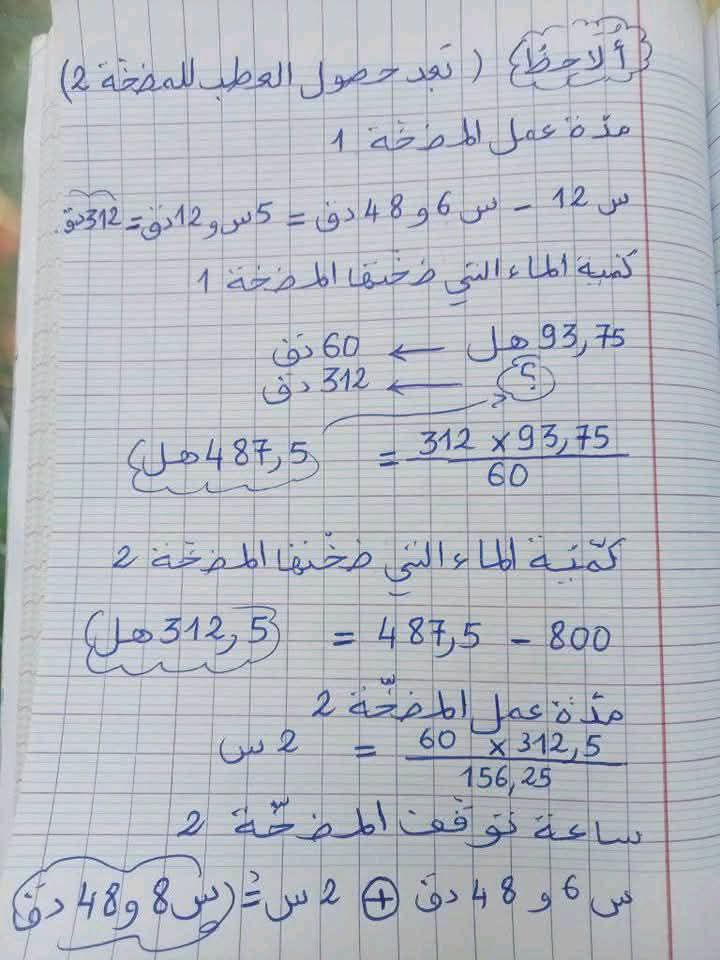 أُلاحظ ( بعد حصول العطب للمضخّة 2)
مدّة عمل المضخّة 1
س 12 - س 6 و 48 دق = 5س و 12دق = 312دق
كمية الماء التي ضختها المضخة 1
93,75 هل ← 60 دق
؟ ← 312 دق
312 × 93,75 / 60 = 487,5 هل
كمّية الماء التي ضخّتها المضخّة 2
800 - 487,5 = 312,5 هل
مدّة عمل المضخّة 2
60 × 312,5 / 156,25 = 2 س
ساعة توقّف المضخّة 2
س 6 و 48 دق + 2 س = س 8 و 48 دق